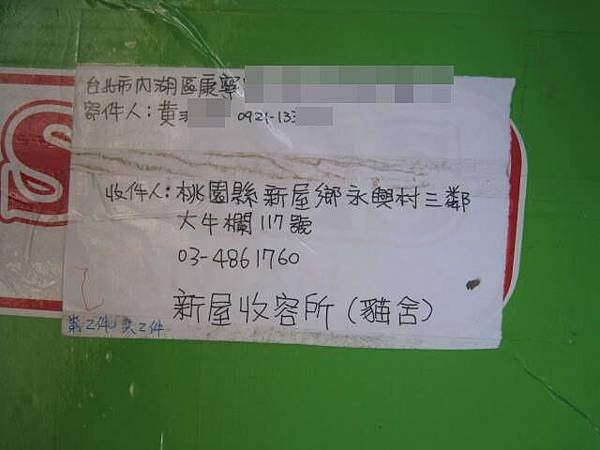 台北市內湖區康寧
寄件人：黃
0921-133
收件人：桃園縣新屋鄉永興村三鄰
大牛欄117號
03-4861760
新屋收容所（貓舍）
第2件 共2件